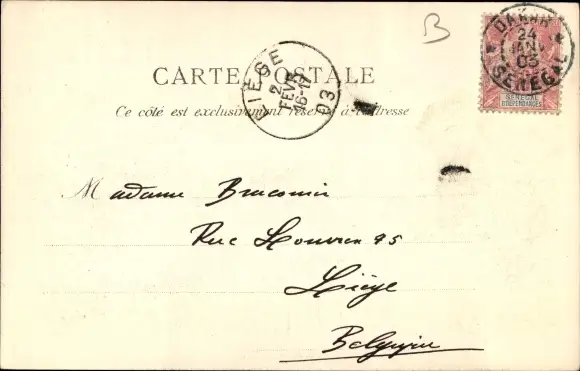 B
DAKAR
24
JANV
03
SENEGAL
SENEGAL
ET DEPENDANCES
CARTE POSTALE
LIEGE
2
FEVR
16-17
03
Ce côté est exclusivement réservé à l'adresse
Madame Braconier
Rue Louvrex 95
Liège
Belgique